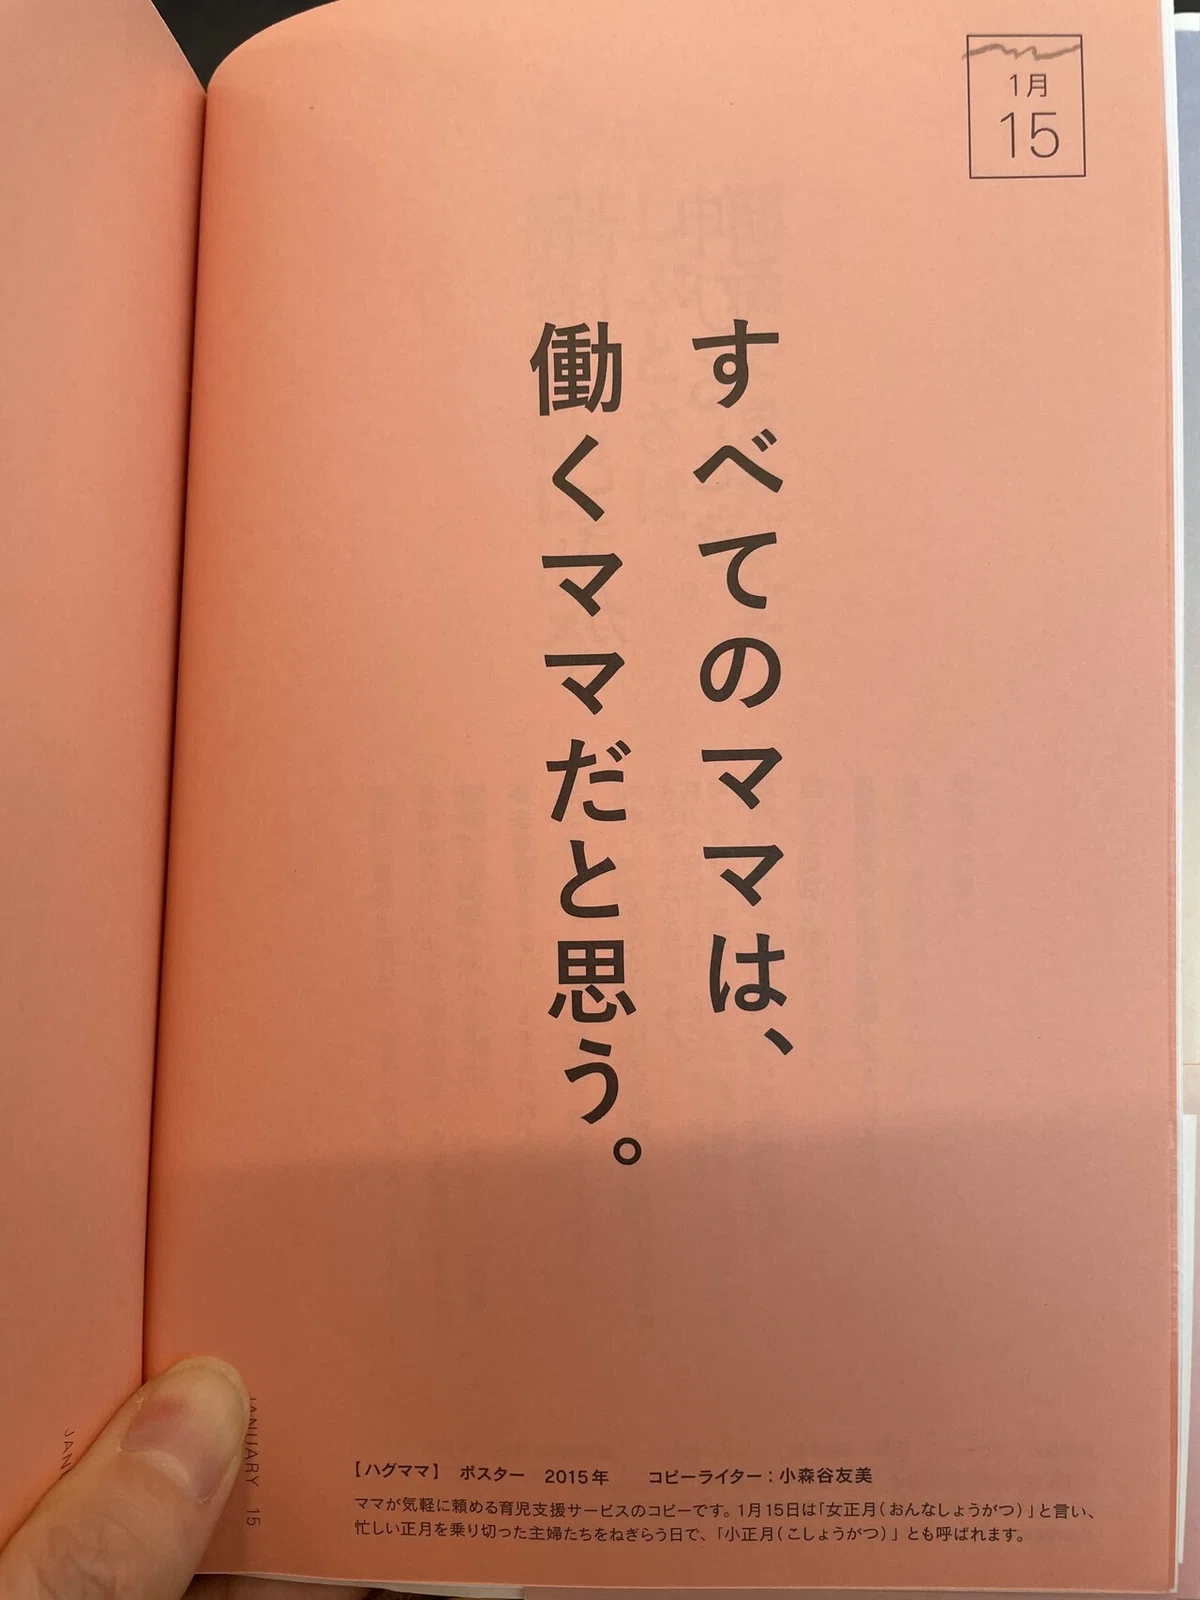 1月
15
すべてのママは、
働くママだと思う。
【ハグママ】 ポスター 2015年 コピーライター：小森谷友美
ママが気軽に頼める育児支援サービスのコピーです。1月15日は「女正月（おんなしょうがつ）」と言い、
忙しい正月を乗り切った主婦たちをねぎらう日で、「小正月（こしょうがつ）」とも呼ばれます。
JANUARY 15
JAN